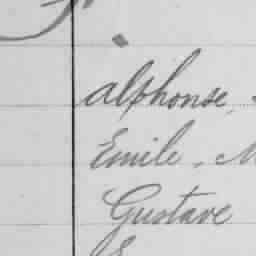 alphonse
Emile - M
Gustave